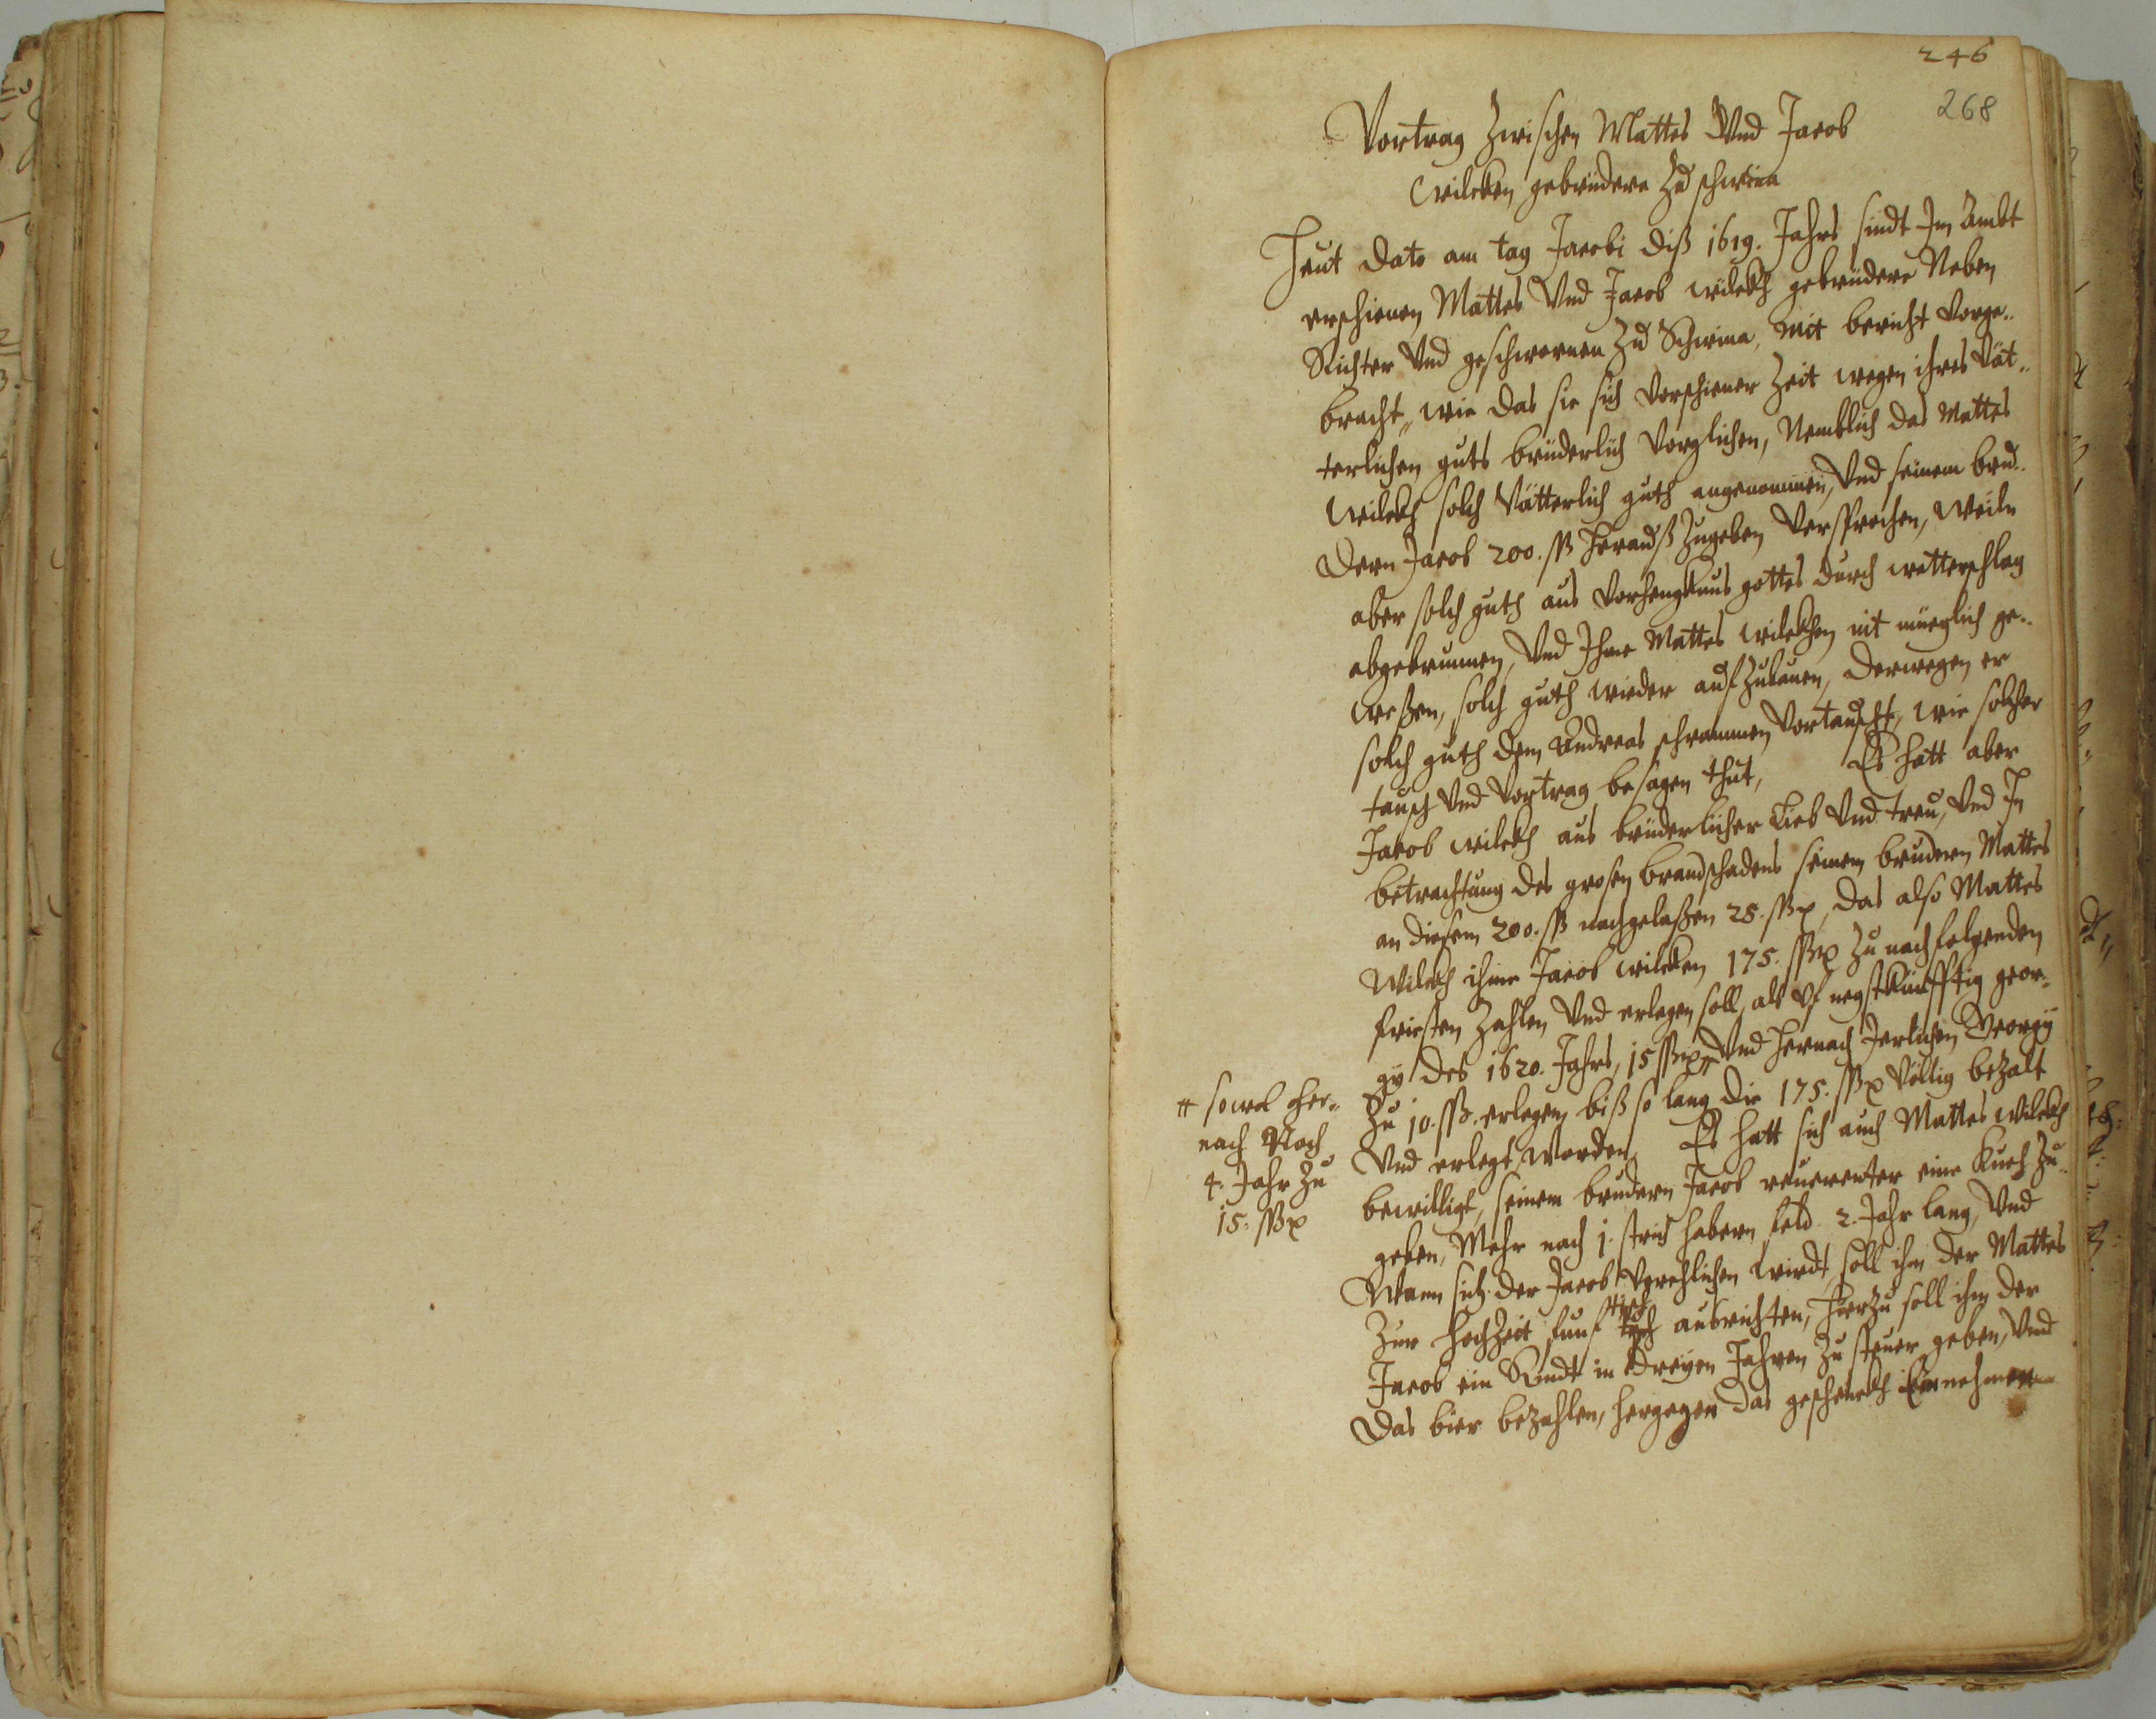 246
268
Vortrag Zwischen Mattes Vnd Jacob
Wilcken gebrüdere Zu schwina
Heut dato am tag Jacobi diß 1619. Jahrs sindt Im Ambt
erschienen Mattes Vnd Jacob wilckh gebrüdere Neben
Richter Vnd geschwornen Zu Schwina, mit bericht vorge..
bracht, wie das sie sich vorschiener Zeit wegen ihres Vät..
terlichen guts brüderlich vorglichen, Nemblich das Mattes
Wilckh solch Vätterlich guth angenommen, Vnd seinem brud..
dern Jacob 200. ß herauß Zugeben Versprochen, Weiln
aber solch guth aus vorhengknus gottes durch wetterschlag
abgebrunnen, Vnd Ihme Mattes Wilckhen nit müeglich ge..
weßen, solch guth wieder auf Zubauen, derwegen er
solch guth dem Andreas schrammen Vortauscht, wie solcher
tausch Vnd Vortrag besagen thut, Es hatt aber
Jacob wilckh aus brüderlicher Lieb Vnd treu, Vnd In
betrachtung des grosen brandschadens seinem brudern Mattes
an diesem 200. ß nachgelaßen 25. ß, das also Mattes
Wilckh ihme Jacob wilcken 175. ß Zu nachfolgenden
fristen Zahlen Vnd erlegen soll, als Vf negstkünfftig Geor..
gy des 1620. Jahrs, 15 ß, Vnd hernach Jerlichen Georgy
# sowol her..
nach Noch
4. Jahr Zu
15. ß
Zu 10. ß. erlegen, biß so lang die 175. ß Völlig bezalt
Vnd erlegt worden, Es hatt sich auch Mattes Wilckh
bewilligt, seinem brudern Jacob eine Kueh Zu..
geben, Mehr nach 1. strich habern feld. 2. Jahr lang, Vnd
Wann sich der Jacob Verehlichen wirdt, soll ihm der Mattes
Zur hochZeit funf tisch ausrichten, hierZu soll ihm der
Jacob ein Rindt in dreyen Jahren Zu steuer geben, Vnd
das bier bezahlen, hergegen das geschenckh Einnehmen